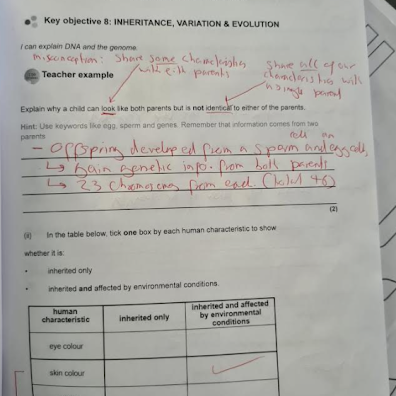 Key objective 8: INHERITANCE, VARIATION & EVOLUTION
I can explain DNA and the genome.
misconception: share some characteristics with both parents
share all of our characteristics with a single parent
Teacher example
Explain why a child can look like both parents but is not identical to either of the parents.
Hint: Use keywords like egg, sperm and genes. Remember that information comes from two
parents
cell an
- Offspring developed from a sperm and egg cell,
↳ gain genetic info. from both parents
↳ 23 chromosomes from each. (total 46)
(2)
(ii) In the table below, tick one box by each human characteristic to show
whether it is:
• inherited only
• inherited and affected by environmental conditions.
human characteristic
inherited only
inherited and affected by environmental conditions
eye colour
skin colour ✓